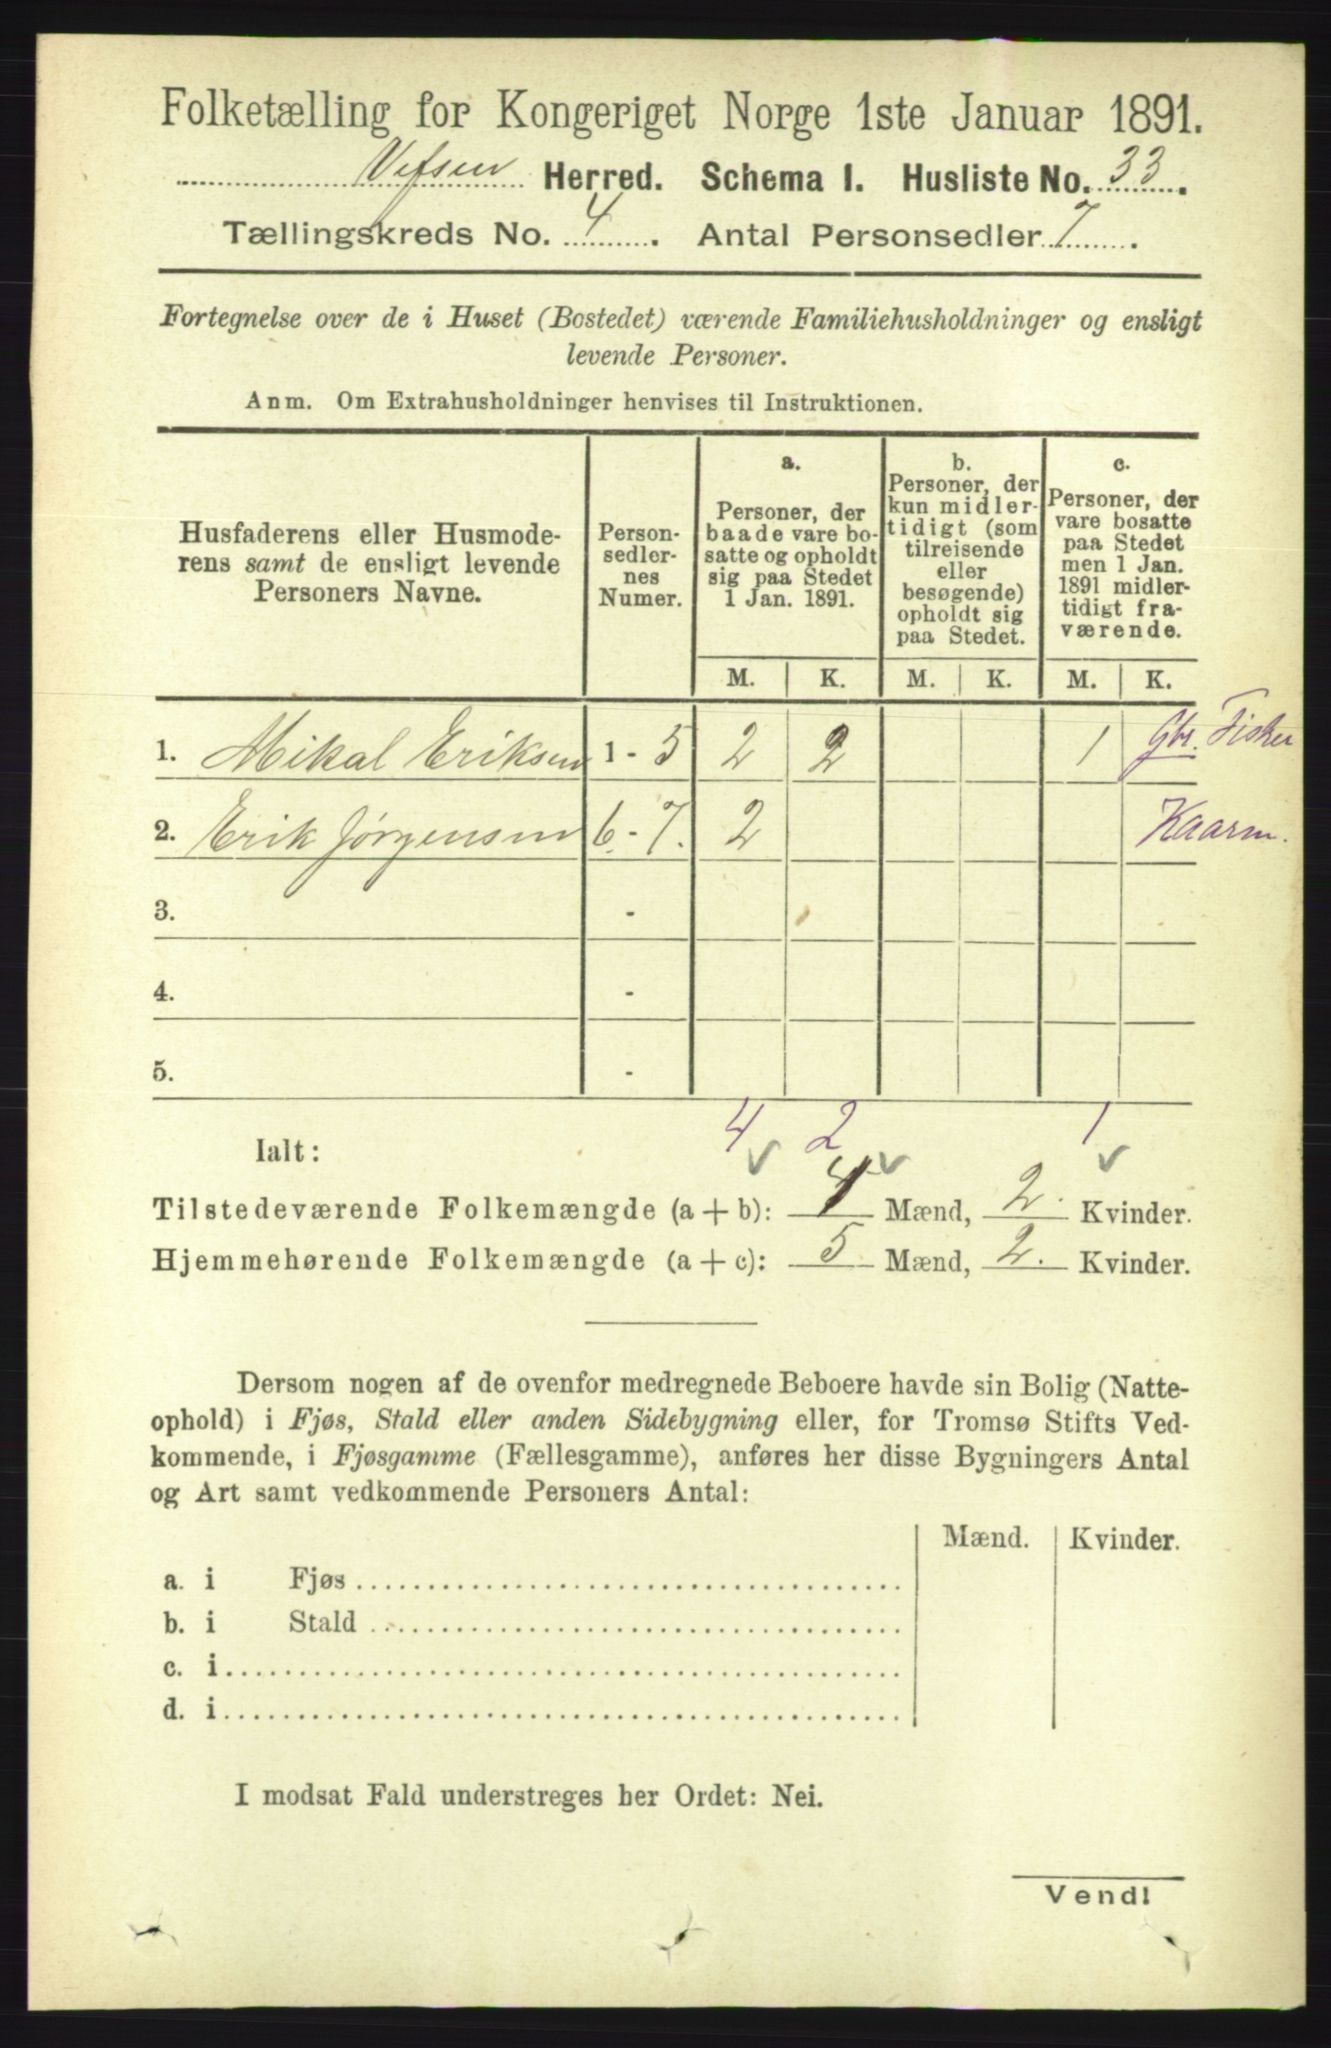 Folketælling for Kongeriget Norge 1ste Januar 1891.
Vefsen Herred. Schema I. Husliste No. 33.
Tællingskreds No. 4. Antal Personsedler 7.
Fortegnelse over de i Huset (Bostedet) værende Familiehusholdninger og ensligt
levende Personer.
Anm. Om Extrahusholdninger henvises til Instruktionen.
Husfaderens eller Husmode-
rens samt de ensligt levende
Personers Navne.
Person-
sedler-
nes
Numer.
a.
Personer, der
baade vare bo-
satte og opholdt
sig paa Stedet
1 Jan. 1891.
b.
Personer, der
kun midler-
tidigt (som
tilreisende
eller
besøgende)
opholdt sig
paa Stedet.
c.
Personer, der
vare bosatte
paa Stedet
men 1 Jan.
1891 midler-
tidigt fra-
værende.
M. K. M. K. M. K.
1. Mikal Eriksen 1 - 5 2 2 1 Gbr. Fisker
2. Erik Jørgensen 6 - 7. 2 Kaarm.
3. -
4. -
5. -
4 2 1
Ialt:
Tilstedeværende Folkemængde (a + b): 4 Mænd, 2. Kvinder.
Hjemmehørende Folkemængde (a + c): 5 Mænd, 2. Kvinder.
Dersom nogen af de ovenfor medregnede Beboere havde sin Bolig (Natte-
ophold) i Fjøs, Stald eller anden Sidebygning eller, for Tromsø Stifts Ved-
kommende, i Fjøsgamme (Fællesgamme), anføres her disse Bygningers Antal
og Art samt vedkommende Personers Antal:
Mænd. Kvinder.
a. i Fjøs
b. i Stald
c. i
d. i
I modsat Fald understreges her Ordet: Nei.
Vend!